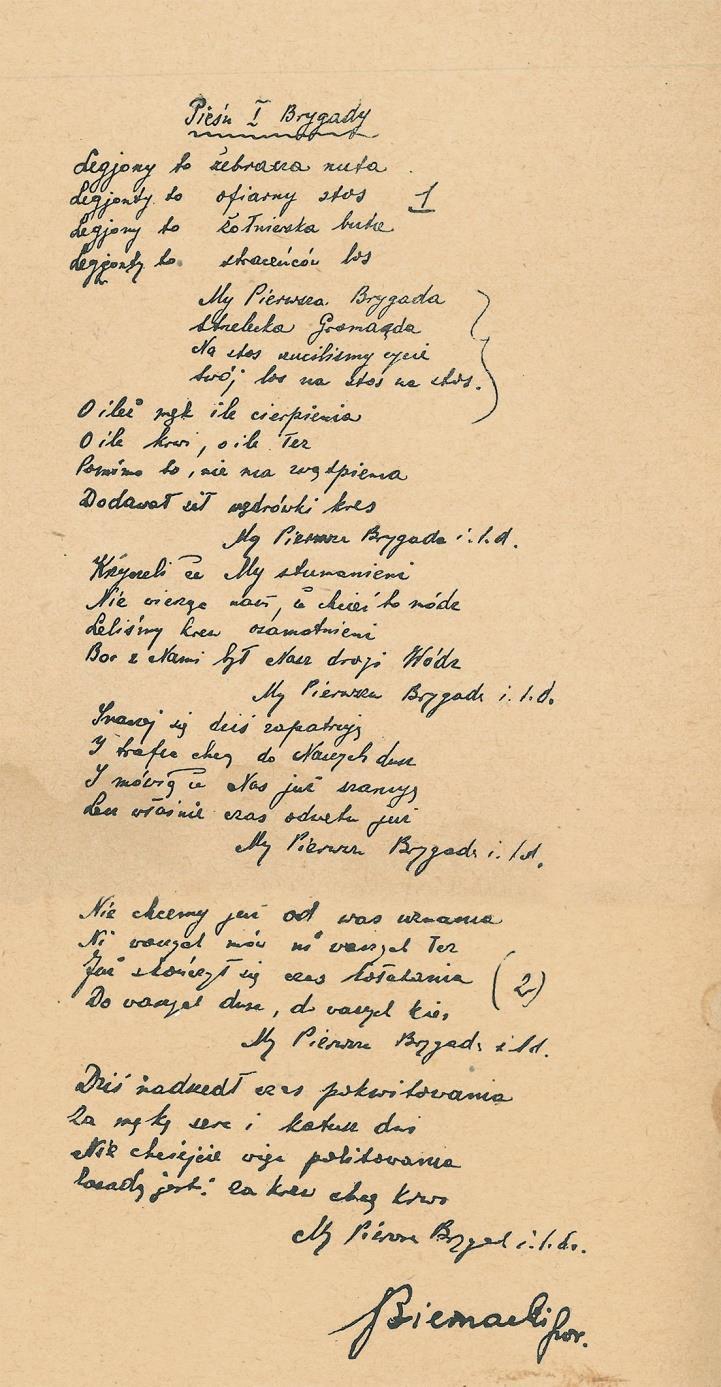 Pieśń I Brygady
Legjony to żebracza nuta
Legjony to ofiarny stos
1
Legjony to żołnierska buta
Legjony to straceńców los
My Pierwsza Brygada
Strzelecka Gromada
Na stos rzuciliśmy życie
swój los na stos na stos.
O ileż mąk ile cierpienia
O ile krwi, o ile łez
Pomimo to, nie ma zwątpienia
Dodawał sił wędrówki kres
My Pierwsza Brygada i.t.d.
Krzyczeli że My stumanieni
Nie wierząc nam, że chcieć to módz
Leliśmy krew osamotnieni
Boc z Nami był Nasz drogi Wódz
My Pierwsza Brygada i.t.d.
Inaczej się dziś zapatrują
I trafić chcą do Naszych dusz
I mówią że Nas już szanują
Lecz właśnie czas odwetu już
My Pierwsza Brygada i.t.d.
Nie chcemy już od was uznania
Ni waszych mów ni waszych łez
Już skończył się czas kołatania
(2)
Do waszych dusz, do waszych kies.
My Pierwsza Brygada i.t.d.
Dziś nadszedł czas pokwitowania
Za mękę serc i katusz dni
Nie chciejcie więc politowania
Zasadą jest: za krew chcą krwi
My Pierwsza Brygad i.t.d.
Biernacki por.